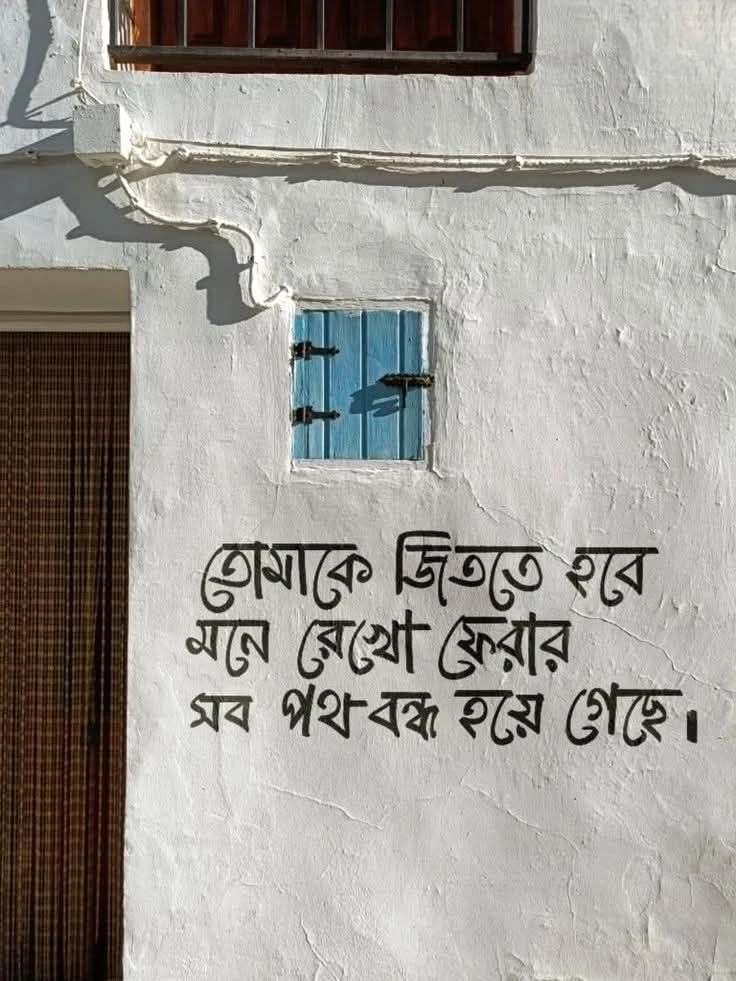 তোমাকে জিততে হবে
মনে রেখো ফেরার
সব পথ বন্ধ হয়ে গেছে।